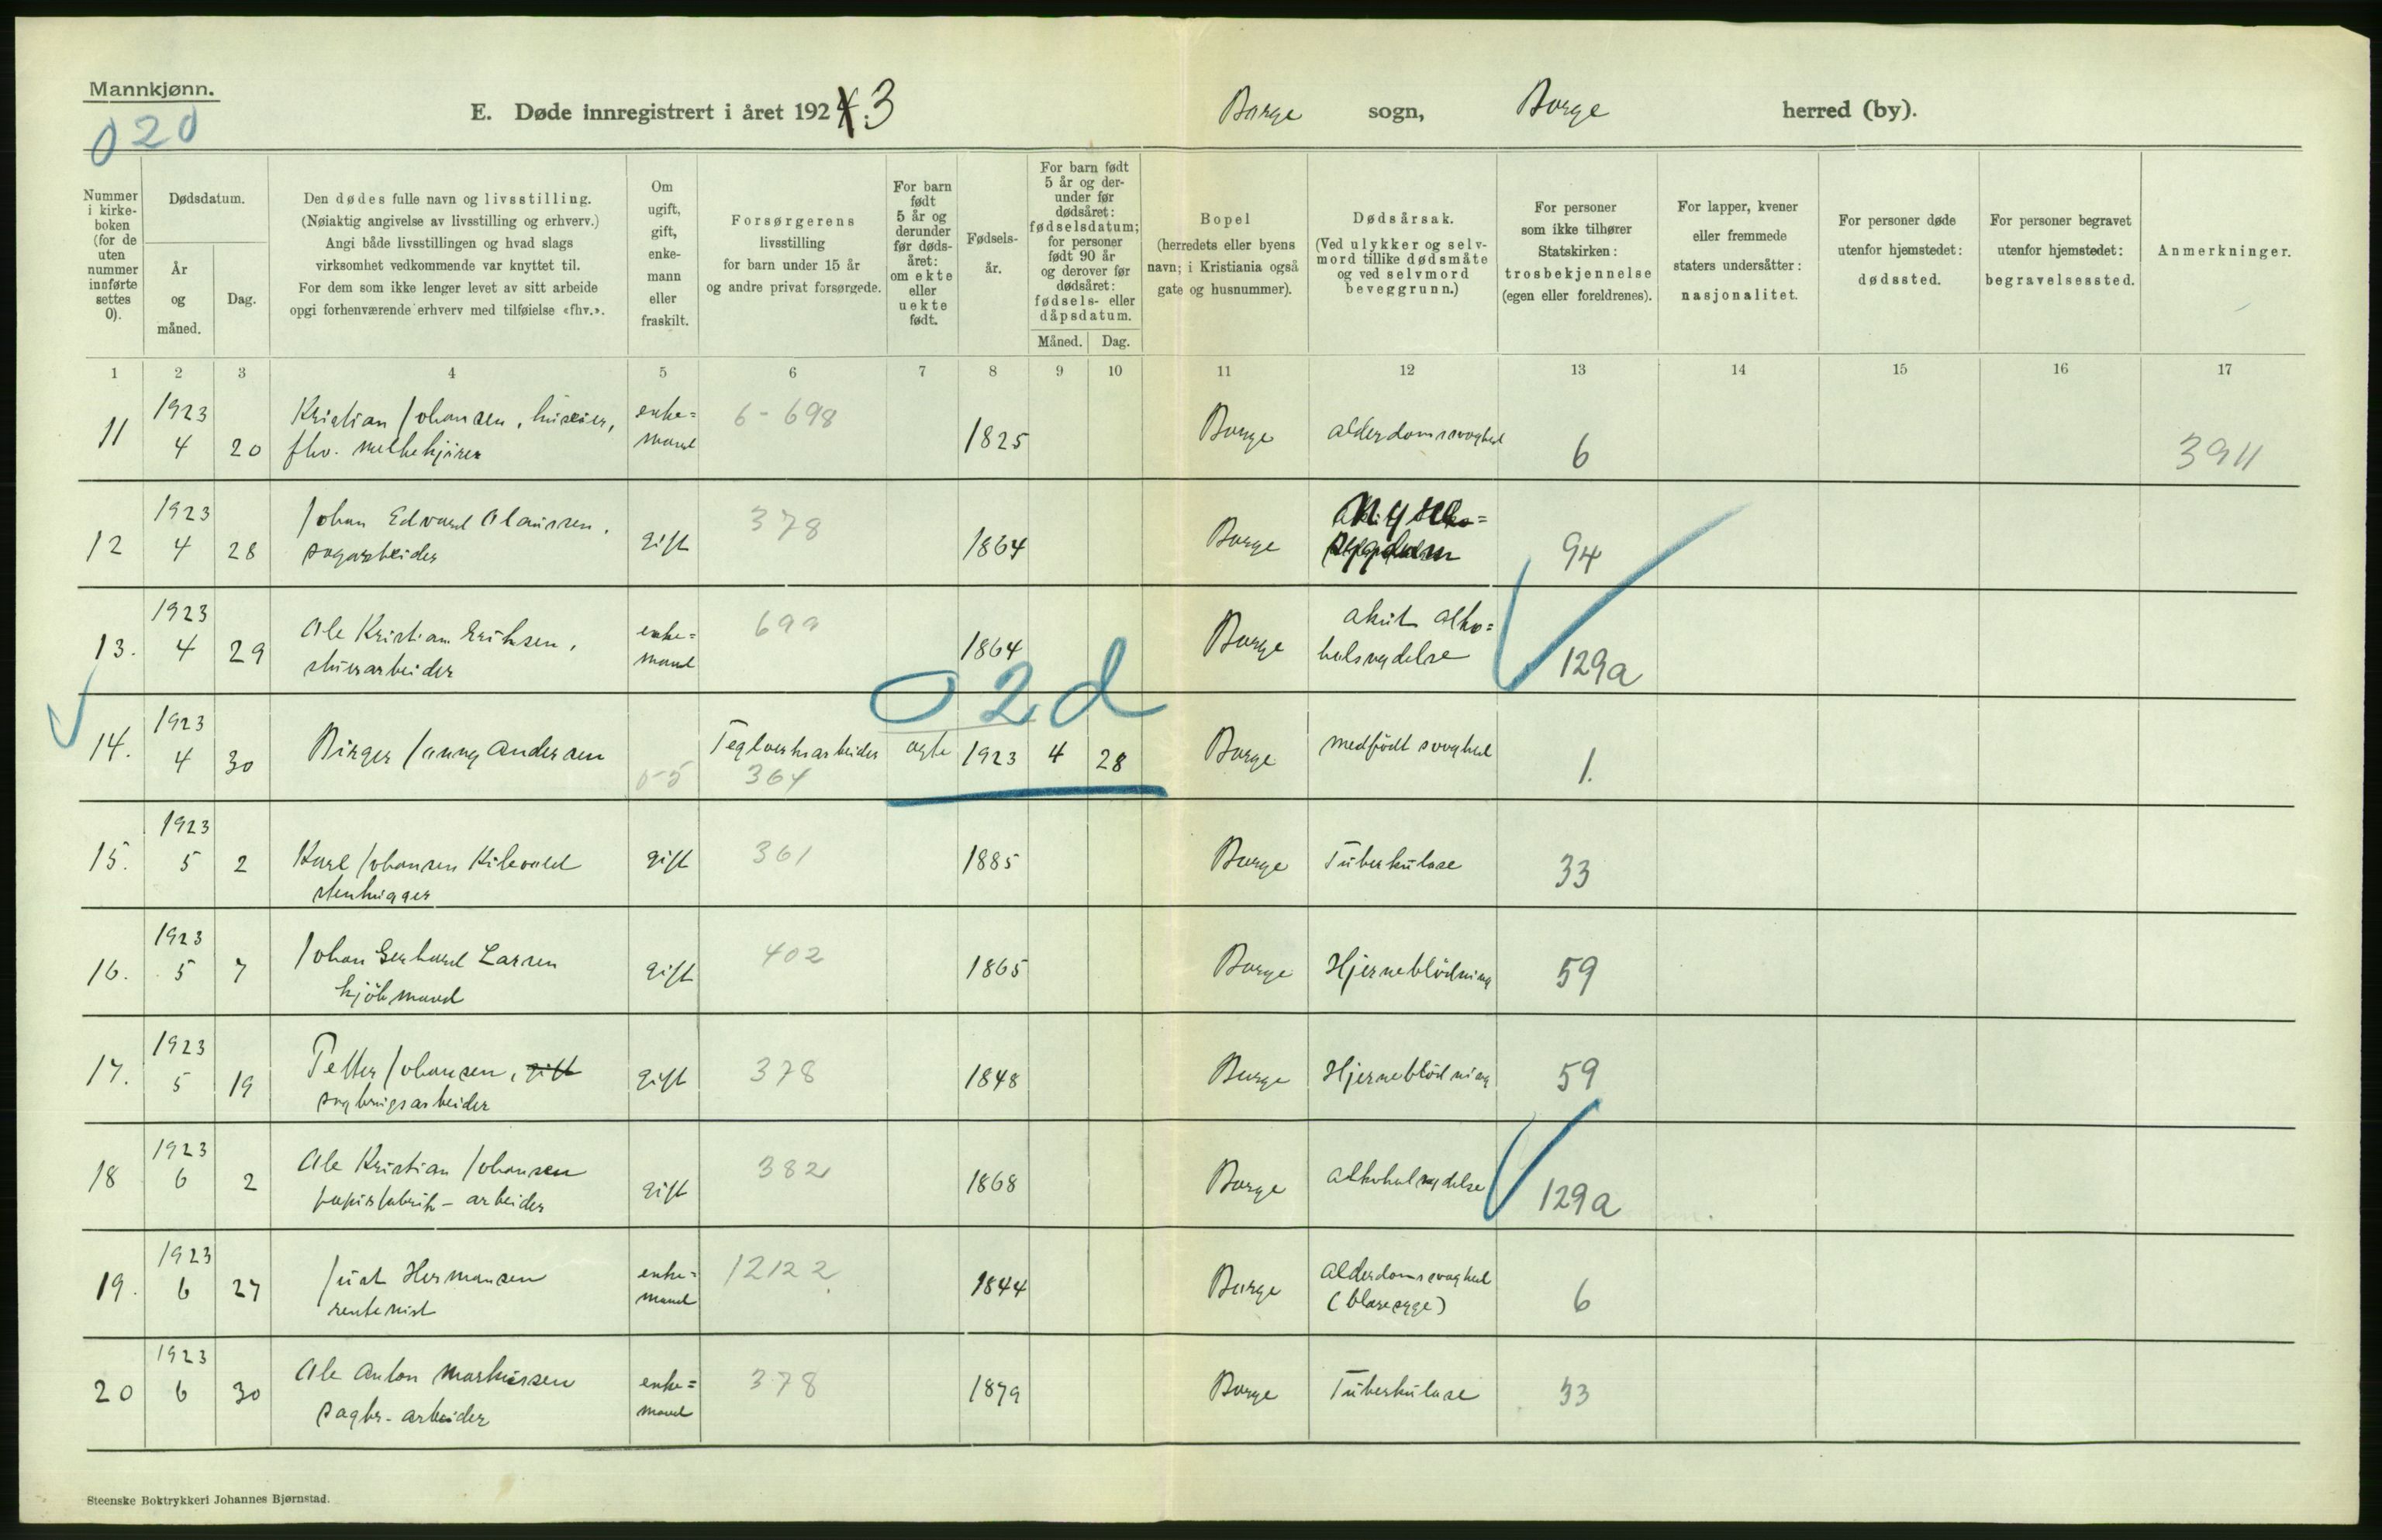 Mannkjønn.
020
E. Døde innregistrert i året 1924.3
Borge sogn, Borge herred (by).
Nummer i kirke-boken (for de uten nummer innførte settes 0).
Dødsdatum.
År og måned.
Dag.
Den dødes fulle navn og livsstilling.
(Nøiaktig angivelse av livsstilling og erhverv.)
Angi både livsstillingen og hvad slags
virksomhet vedkommende var knyttet til.
For dem som ikke lenger levet av sitt arbeide
opgi forhenværende erhverv med tilføielse «fhv.».
Om ugift, gift, enke-mann eller fraskilt.
Forsørgerens
livsstilling
for barn under 15 år
og andre privat forsørgede.
For barn født 5 år og derunder før døds-året: om ekte eller uekte født.
Fødsels-år.
For barn født 5 år og der-under før dødsåret: fødselsdatum; for personer født 90 år og derover før dødsåret: fødsels- eller dåpsdatum.
Måned. Dag.
Bopel
(herredets eller byens
navn; i Kristiania også
gate og husnummer).
Dødsårsak.
(Ved ulykker og selv-
mord tillike dødsmåte
og ved selvmord
beveggrunn.)
For personer
som ikke tilhører
Statskirken:
trosbekjennelse
(egen eller foreldrenes).
For lapper, kvener
eller fremmede
staters undersåtter:
nasjonalitet.
For personer døde
utenfor hjemstedet:
dødssted.
For personer begravet
utenfor hjemstedet:
begravelsessted.
Anmerkninger.
1 2 3 4 5 6 7 8 9 10 11 12 13 14 15 16 17
11 1923 4 20 Kristian Johansen, huseier, fhv. melkekjører enke=mand 6-698 1825 Borge alderdomssvaghed 6 3911
12 1923 4 28 Johan Edvard Olaussen, sagarbeider gift 378 1864 Borge 94
13. 1923 4 29 Ole Kristian Eriksen, stuerarbeider enke=mand 699 1864 Borge akut alko=holnydelse 129a
02d
14. 1923 4 30 Birger Jonny Andersen 55 Teglverksarbeider 364 ægte 1923 4 28 Borge medfödt svaghed 1.
15. 1923 5 2 Karl Johansen Kilevold stenhugger gift 361 1885 Borge Tuberkulose 33
16. 1923 5 7 Johan Gerhard Larsen kjöbmand gift 402 1865 Borge Hjerneblödning 59
17. 1923 5 19 Petter Johansen, gift sagbrugsarbeider gift 378 1848 Borge Hjerneblödning 59
18 1923 6 2 Ole Kristian Johansen papirfabrik-arbeider gift 382 1868 Borge alkoholnydelse 129a
19. 1923 6 27 Just Hermansen rentenist enke=mand 12122 1844 Borge alderdomssvaghed (blæresyge) 6
20 1923 6 30 Ole Anton Markussen sagbr-arbeider enke=mand 378 1879 Borge Tuberkulose 33
Steenske Boktrykkeri Johannes Bjørnstad.